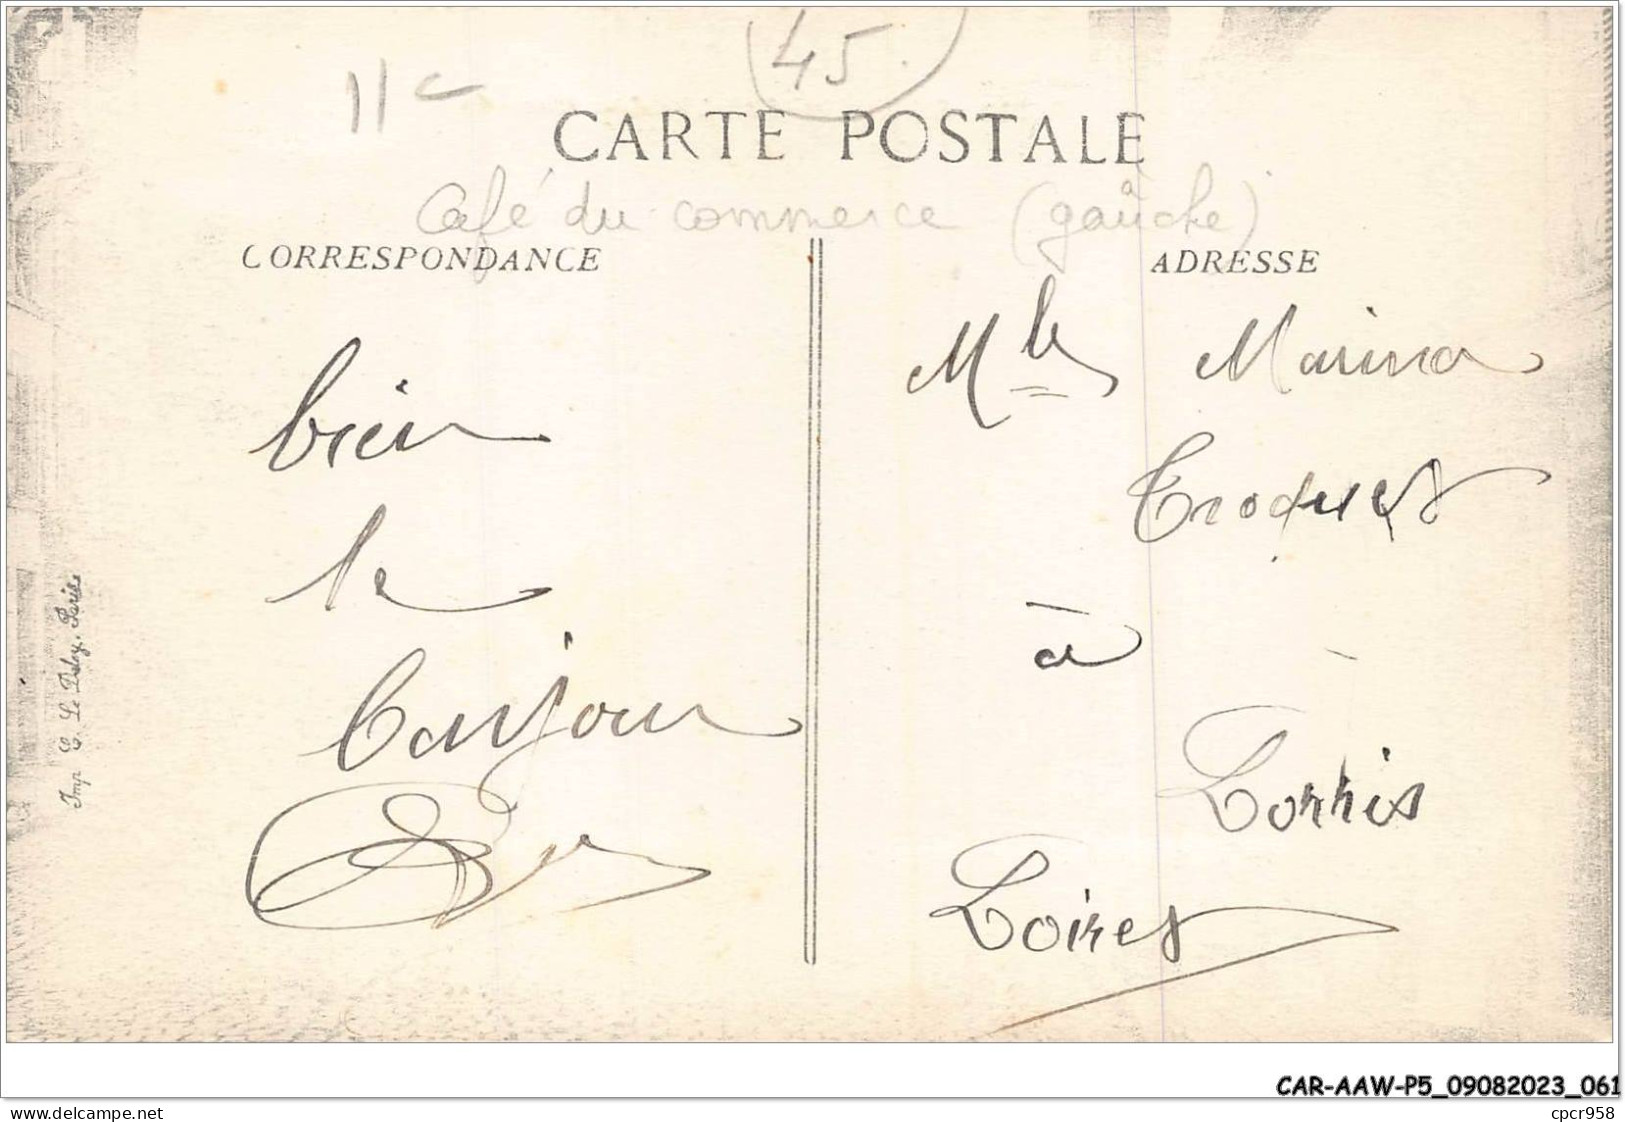 11c
45.
CARTE POSTALE
Café du commerce (gauche)
CORRESPONDANCE
ADRESSE
bien
le
bonjour
Mlle Marina
Troquet
à
Lorris
Loiret
Imp. E. Le Deley, Paris
CAR-AAW-P5_09082023_061
www.delcampe.net
cpcr958